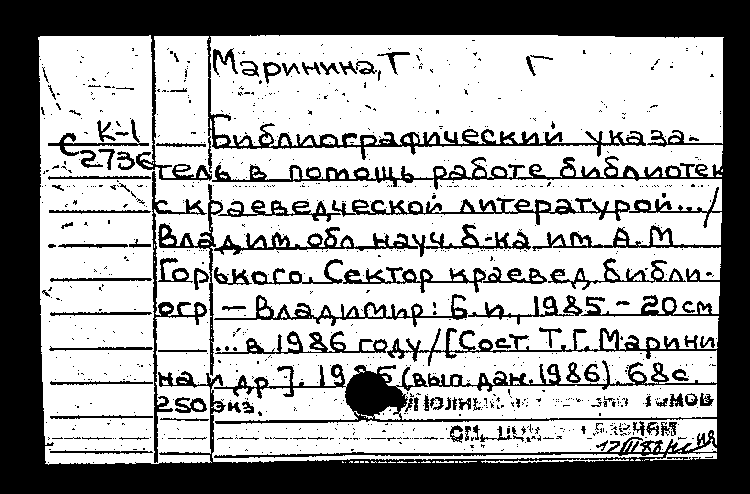 Маринина, Т Г
К-1
С 2736
Библиографический указа-
тель в помощь работе библиотек
с краеведческой литературой.../
Владим. обл. науч. б-ка им. А.М
Горького. Сектор краевед. библи-
огр — Владимир: Б.и., 1985. - 20 см
... в 1986 году / [Сост. Т.Г. Марини
на и др]. 1985 (вып. дан. 1986). 68с.
250 экз.
томов
см.